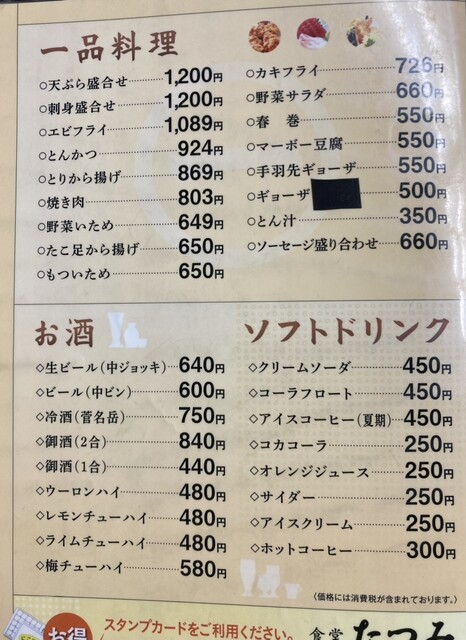 一品料理
○天ぷら盛合せ 1,200円
○刺身盛合せ 1,200円
○エビフライ 1,089円
○とんかつ 924円
○とりから揚げ 869円
○焼き肉 803円
○野菜いため 649円
○たこ足から揚げ 650円
○もついため 650円
○カキフライ 726円
○野菜サラダ 660円
○春 巻 550円
○マーボー豆腐 550円
○手羽先ギョーザ 550円
○ギョーザ 500円
○とん汁 350円
○ソーセージ盛り合わせ 660円
お酒
◇生ビール(中ジョッキ) 640円
◇ビール(中ビン) 600円
◇冷酒(菅名岳) 750円
◇御酒(2合) 840円
◇御酒(1合) 440円
◇ウーロンハイ 480円
◇レモンチューハイ 480円
◇ライムチューハイ 480円
◇梅チューハイ 580円
ソフトドリンク
◇クリームソーダ 450円
◇コーラフロート 450円
◇アイスコーヒー(夏期) 450円
◇コカコーラ 250円
◇オレンジジュース 250円
◇サイダー 250円
◇アイスクリーム 250円
◇ホットコーヒー 300円
〈価格には消費税が含まれております。〉
お得
スタンプカードをご利用ください。
食堂 たつみ